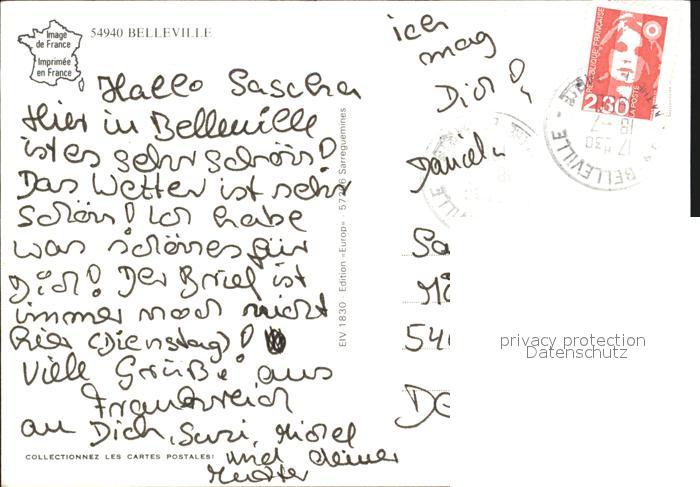 Image
de France
Imprimée
en France
54940 BELLEVILLE
Hallo Sascha
Hier in Belleville
ist es sehr schön!
Das Wetter ist sehr
schön! Ich habe
was schönes für
Dich! Der Brief ist
immer noch nicht
hier (Dienstag)!
Viele Grüße aus
Frankreich
an Dich, Suzi, Michel
und deiner
Mutter
COLLECTIONNEZ LES CARTES POSTALES!
EIV 1830 Edition «Europ» - 57206 Sarreguemines
ich
mag
Dich!
Daniela
REPUBLIQUE FRANÇAISE
2,30
LA POSTE
17 H30
18 -7
BELLEVILLE
Sa
Mü
54
DE
privacy protection
Datenschutz